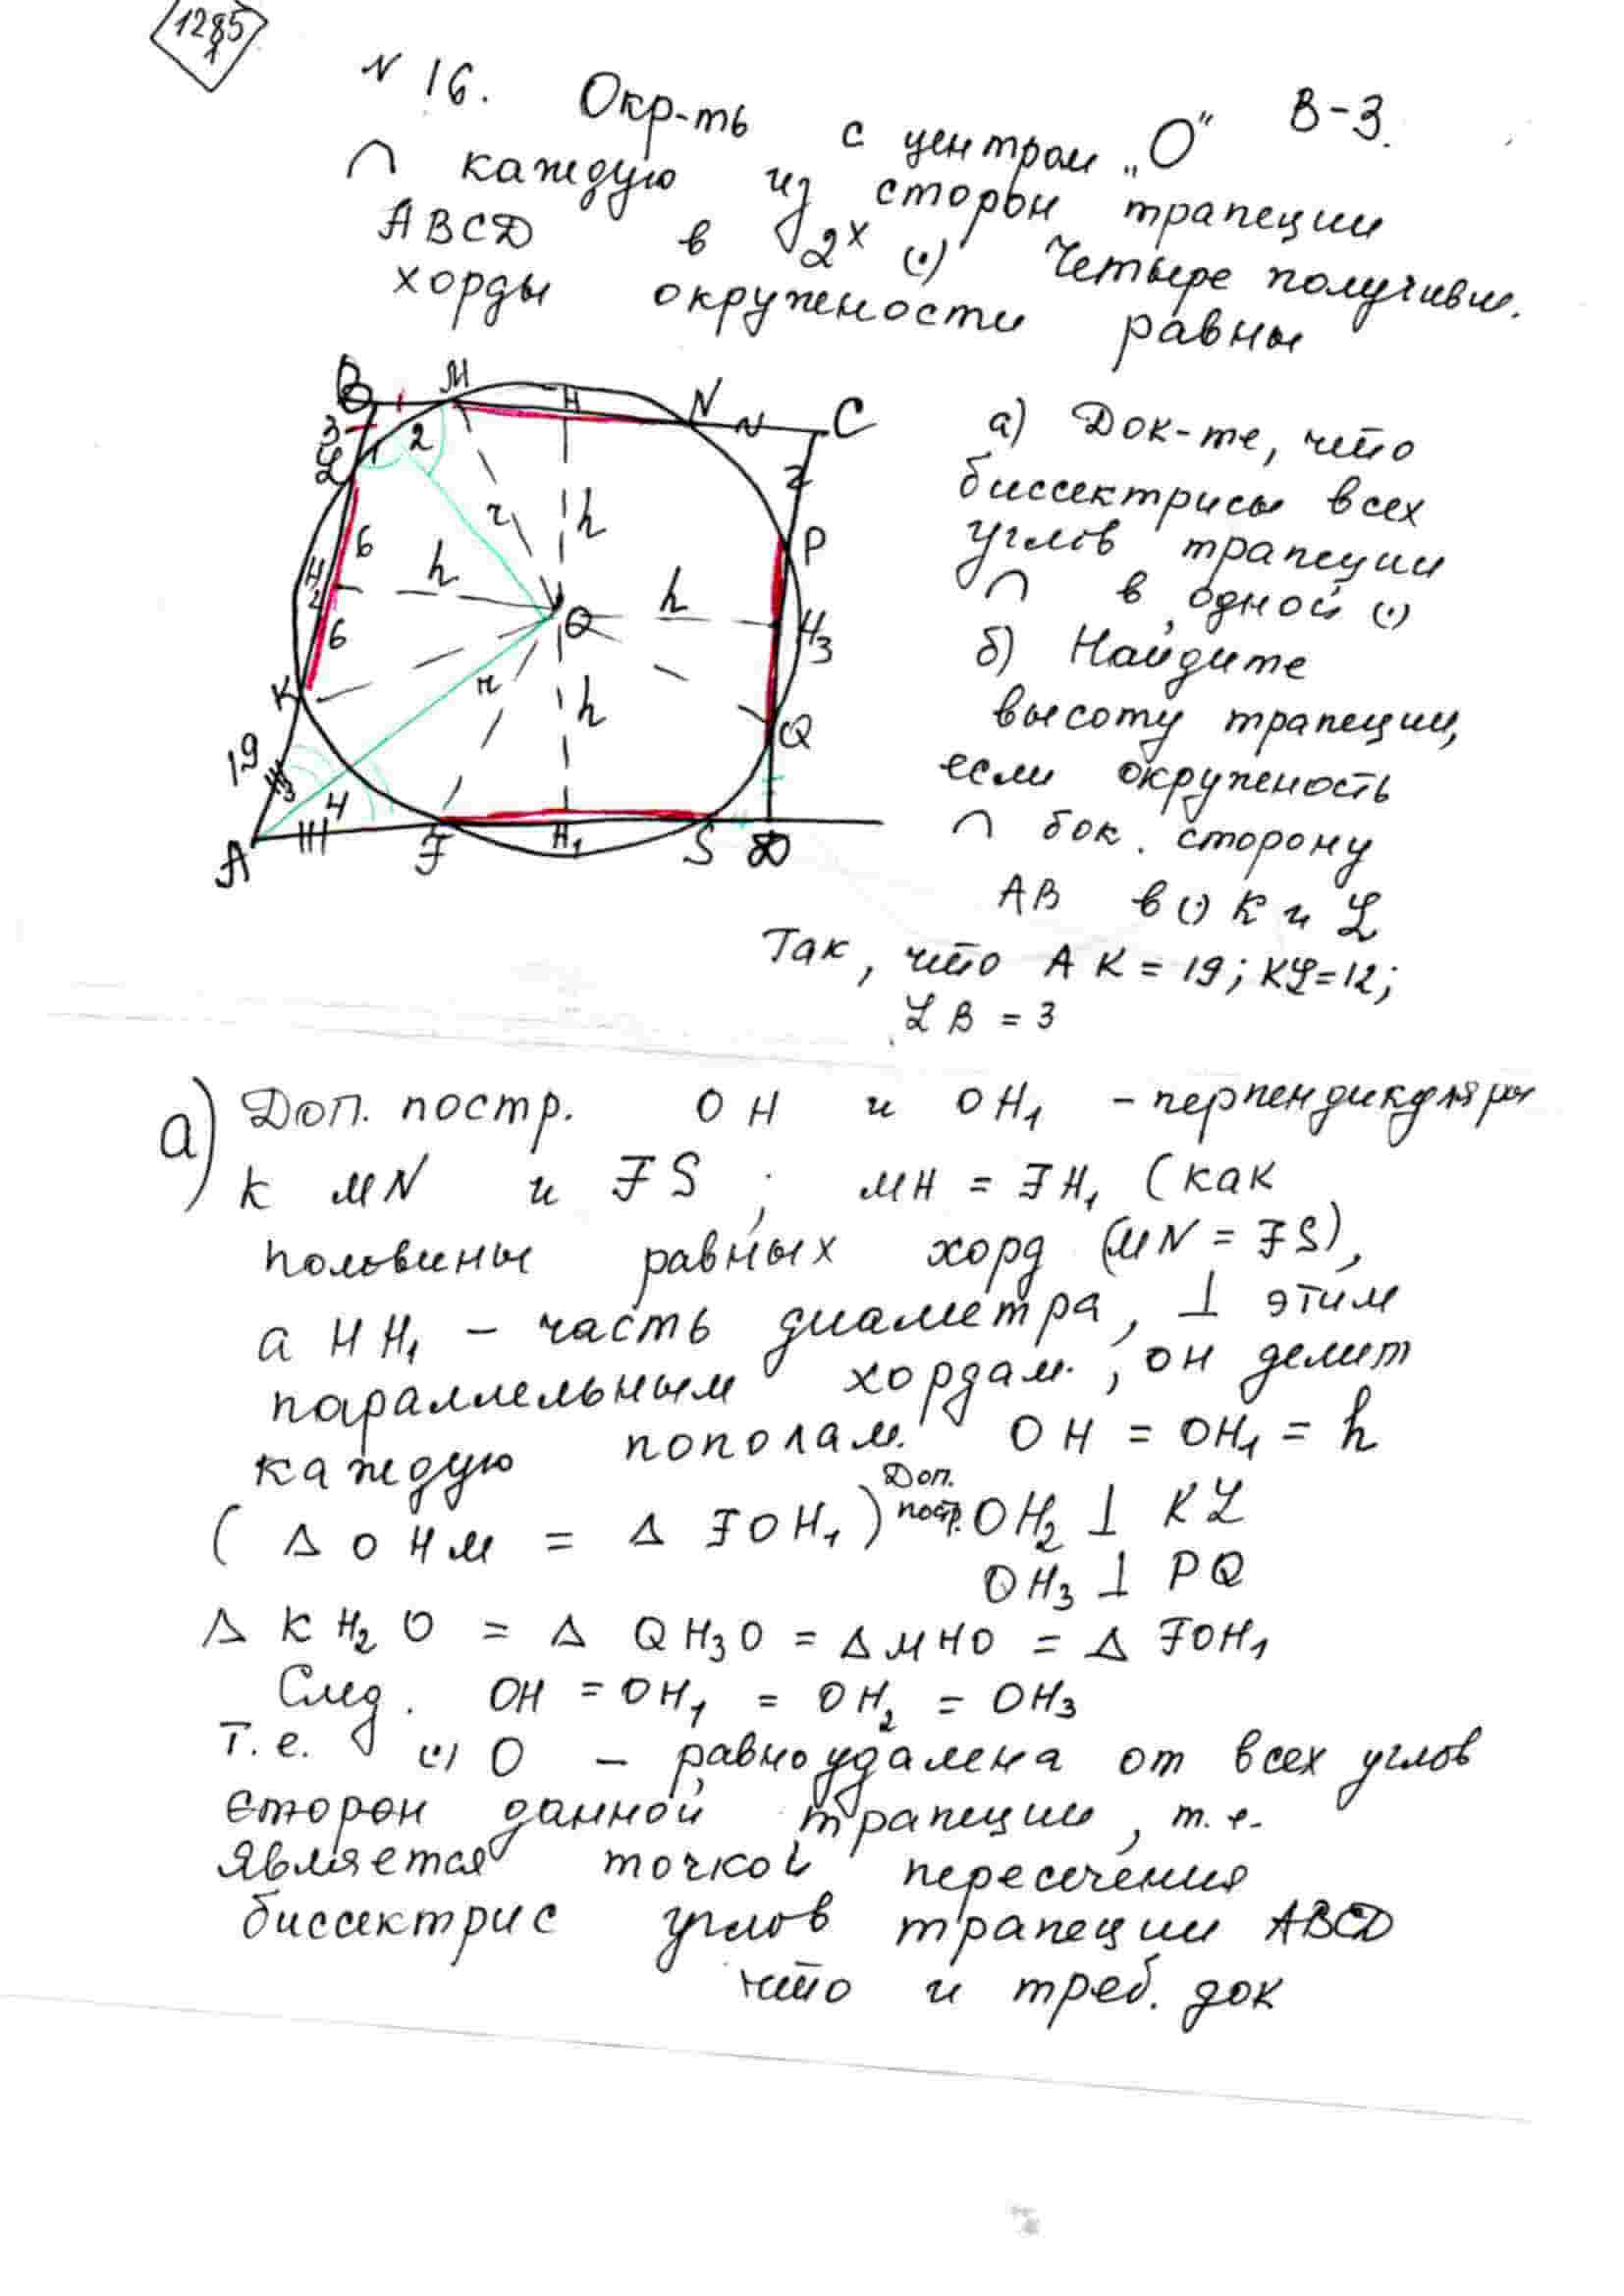 1285
1
N 16. Окр-ть с центром „О" В-3.
∩ каждую из сторон трапеции
ABCD в 2х (·) Четыре получивш.
хорды окружности равны
B M H N C
3 2
L
6 r h
H2 h O h P
6 H3
K r h Q
19
3 4
A F H1 S D
а) Док-те, что
биссектрисы всех
углов трапеции
∩ в одной (·)
б) Найдите
высоту трапеции,
если окружность
∩ бок. сторону
AB в (·) K и L
Так, что AK = 19; KL = 12;
LB = 3
а) Доп. постр. OH и OH1 - перпендикуляры
к MN и FS ; MH = FH1 (как
половины равных хорд (MN = FS),
а HH1 – часть диаметра, ⊥ этим
параллельным хордам, он делит
каждую пополам. OH = OH1 = h
( Δ OHM = Δ FOH1 ) Доп. постр. OH2 ⊥ KL
OH3 ⊥ PQ
Δ KH2O = Δ QH3O = Δ MHO = Δ FOH1
След. OH = OH1 = OH2 = OH3
т.е. (·) O – равноудалена от всех углов
сторон данной трапеции, т.е.
является точкой пересечения
биссектрис углов трапеции ABCD
что и треб. док